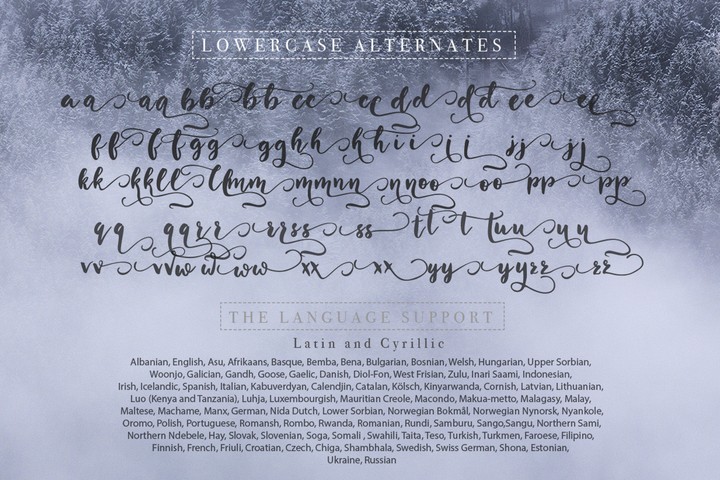 LOWERCASE ALTERNATES
aa aa bb bb cc cc dd dd ee ee
ff ff gg gg hh hh ii ii jj jj
kk kk ll ll mm mm nn nn oo oo pp pp
qq qq rr rr ss ss tt tt uu uu
vv vv ww ww xx xx yy yy zz zz
THE LANGUAGE SUPPORT
Latin and Cyrillic
Albanian, English, Asu, Afrikaans, Basque, Bemba, Bena, Bulgarian, Bosnian, Welsh, Hungarian, Upper Sorbian,
Woonjo, Galician, Gandh, Goose, Gaelic, Danish, Diol-Fon, West Frisian, Zulu, Inari Saami, Indonesian,
Irish, Icelandic, Spanish, Italian, Kabuverdyan, Calendjin, Catalan, Kölsch, Kinyarwanda, Cornish, Latvian, Lithuanian,
Luo (Kenya and Tanzania), Luhja, Luxembourgish, Mauritian Creole, Macondo, Makua-metto, Malagasy, Malay,
Maltese, Machame, Manx, German, Nida Dutch, Lower Sorbian, Norwegian Bokmål, Norwegian Nynorsk, Nyankole,
Oromo, Polish, Portuguese, Romansh, Rombo, Rwanda, Romanian, Rundi, Samburu, Sango,Sangu, Northern Sami,
Northern Ndebele, Hay, Slovak, Slovenian, Soga, Somali , Swahili, Taita, Teso, Turkish, Turkmen, Faroese, Filipino,
Finnish, French, Friuli, Croatian, Czech, Chiga, Shambhala, Swedish, Swiss German, Shona, Estonian,
Ukraine, Russian